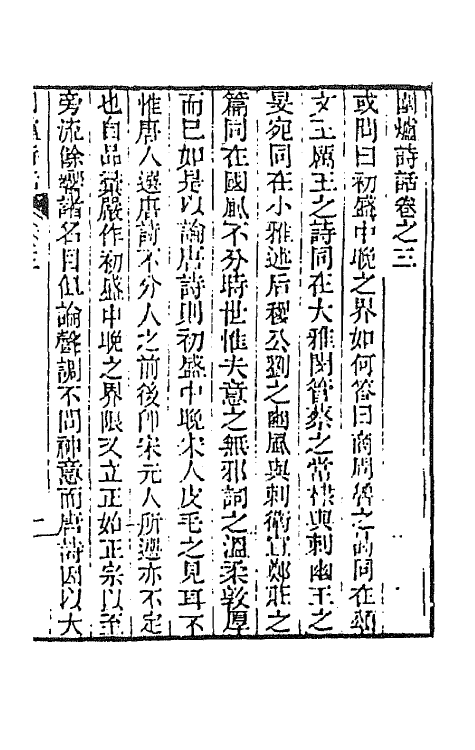 圍爐詩話卷之三
或問曰初盛中晚之界如何答曰商周魯之詩同在頌
文王厲王之詩同在大雅閔管蔡之常棣與刺幽王之
旻宛同在小雅述后稷公劉之豳風與刺衛宣鄭莊之
篇同在國風不分時世惟夫意之無邪詞之溫柔敦厚
而已如是以論唐詩則初盛中晚宋人皮毛之見耳不
惟唐人選唐詩不分人之前後即宋元人所選亦不定
也自品彙嚴作初盛中晚之界限又立正始正宗以至
旁流餘響諸名目但論聲調不問神意而唐詩因以大